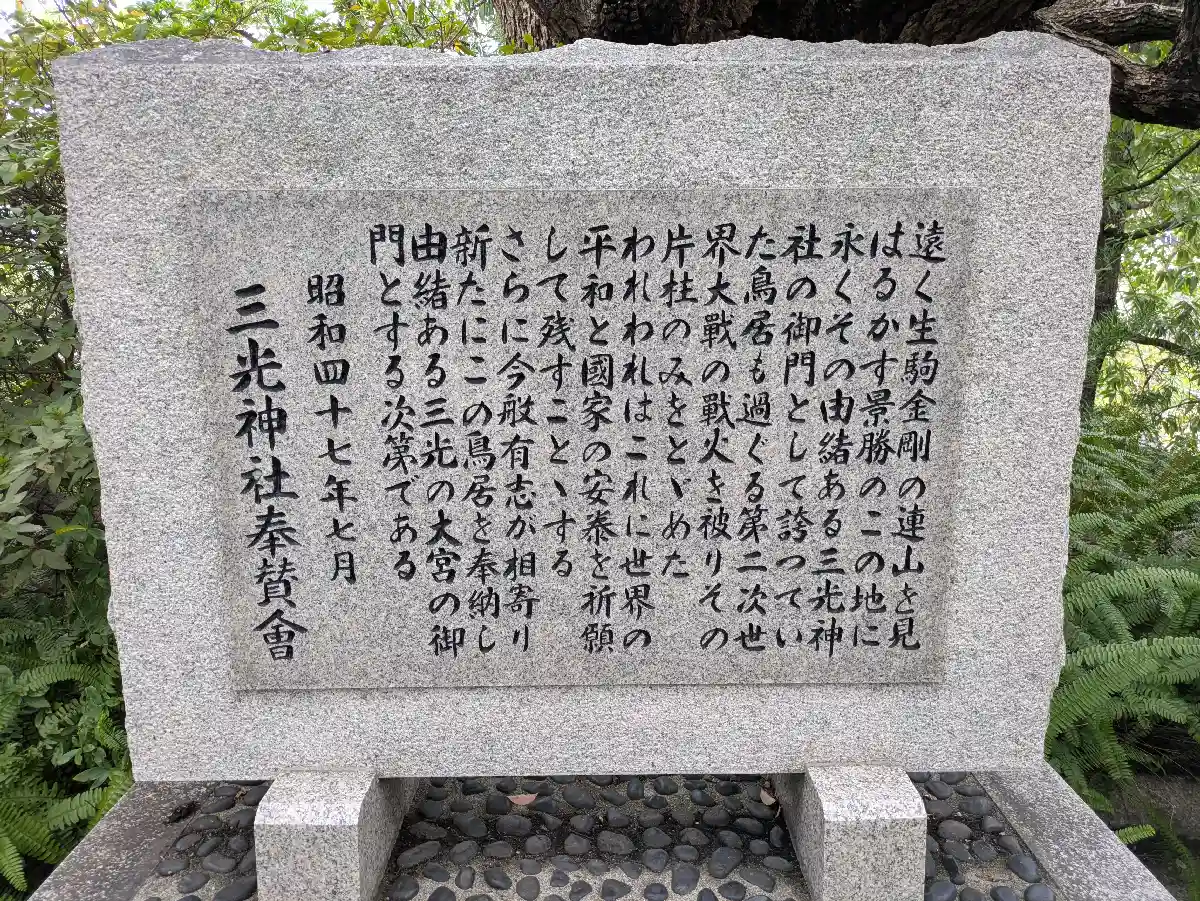 遠く生駒金剛の連山を見
はるかす景勝のこの地に
永くその由緒ある三光神
社の御門として誇ってい
た鳥居も過ぐる第二次世
界大戰の戰火を被りその
片柱のみをとゞめた
われわれはこれに世界の
平和と國家の安泰を祈願
して残すことゝする
さらに今般有志が相寄り
新たにこの鳥居を奉納し
由緒ある三光の大宮の御
門とする次第である
昭和四十七年七月
三光神社奉賛會